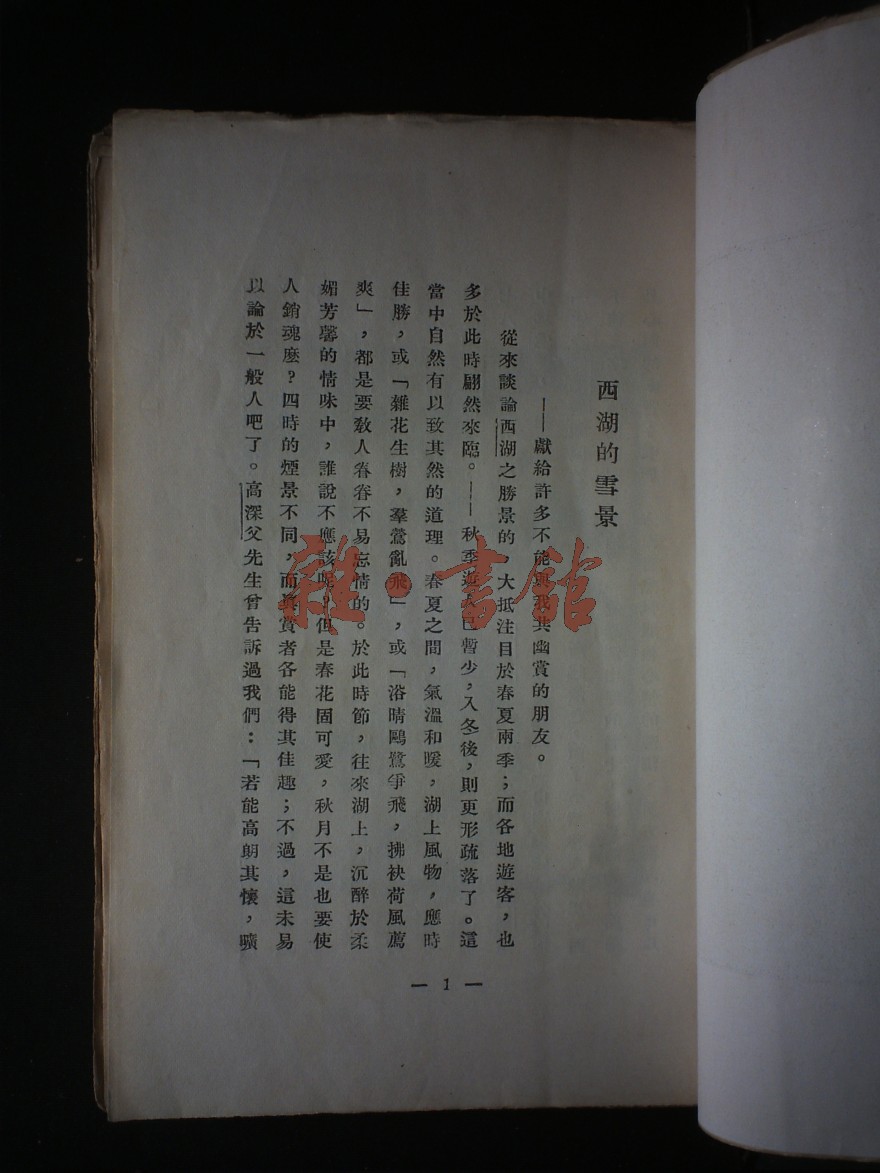 西湖的雪景
——獻給許多不能與我共幽賞的朋友。
從來談論西湖之勝景的，大抵注目於春夏兩季；而各地遊客，也
多於此時翩然來臨。——秋季遊人已暫少，入冬後，則更形疏落了。這
當中自然有以致其然的道理。春夏之間，氣溫和暖，湖上風物，應時
佳勝，或「雜花生樹，羣鶯亂飛」，或「浴晴鷗鷺爭飛，拂袂荷風薦
爽」，都是要敎人眷眷不易忘情的。於此時節，往來湖上，沉醉於柔
媚芳馨的情味中，誰說不應該呢？但是春花固可愛，秋月不是也要使
人銷魂麽？四時的煙景不同，而眞賞者各能得其佳趣；不過，這未易
以論於一般人吧了。高深父先生曾告訴過我們：「若能高朗其懷，曠
— 1 —
雜·書館